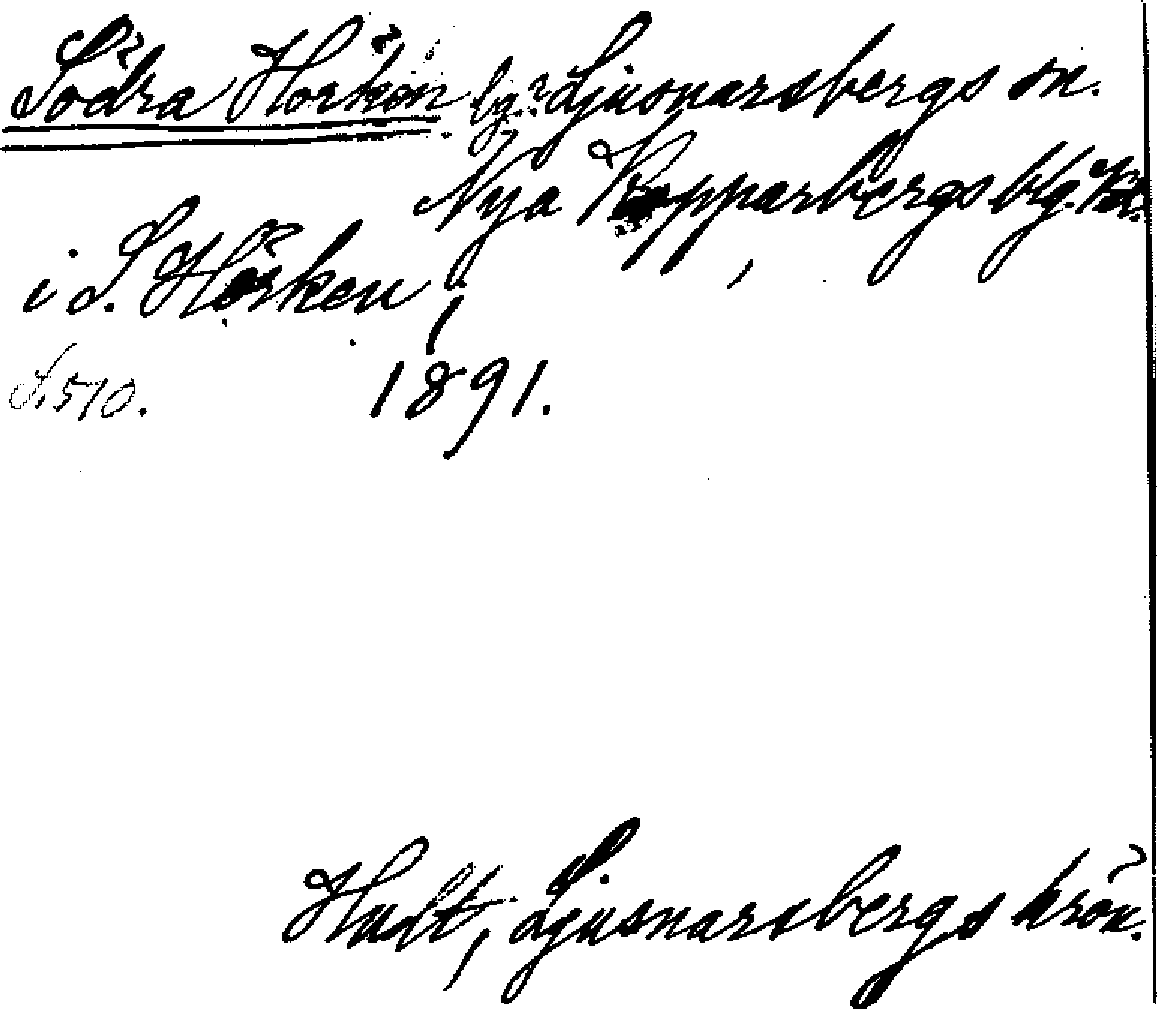 Södra Hörken by? Ljusnarsbergs sn.
Nya Kopparbergs blg.
i S. Hörken,
S. 510. 1891.
Hult, Ljusnarsbergs krön.